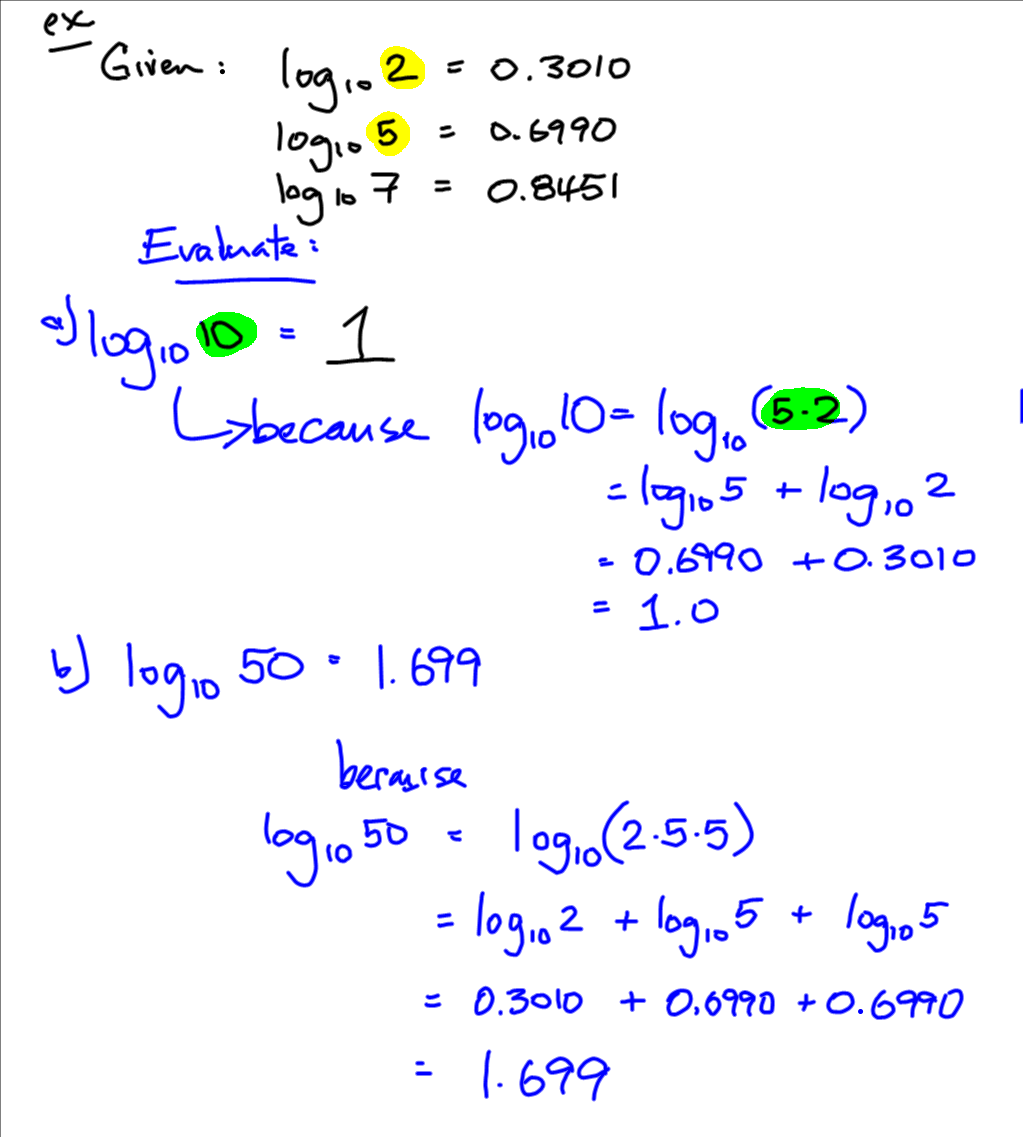 ex
Given: log₁₀ 2 = 0.3010
log₁₀ 5 = 0.6990
log₁₀ 7 = 0.8451
Evaluate:
a) log₁₀ 10 = 1
↳ because log₁₀ 10 = log₁₀ (5·2)
= log₁₀ 5 + log₁₀ 2
= 0.6990 + 0.3010
= 1.0
b) log₁₀ 50 = 1.699
because
log₁₀ 50 = log₁₀ (2·5·5)
= log₁₀ 2 + log₁₀ 5 + log₁₀ 5
= 0.3010 + 0.6990 + 0.6990
= 1.699